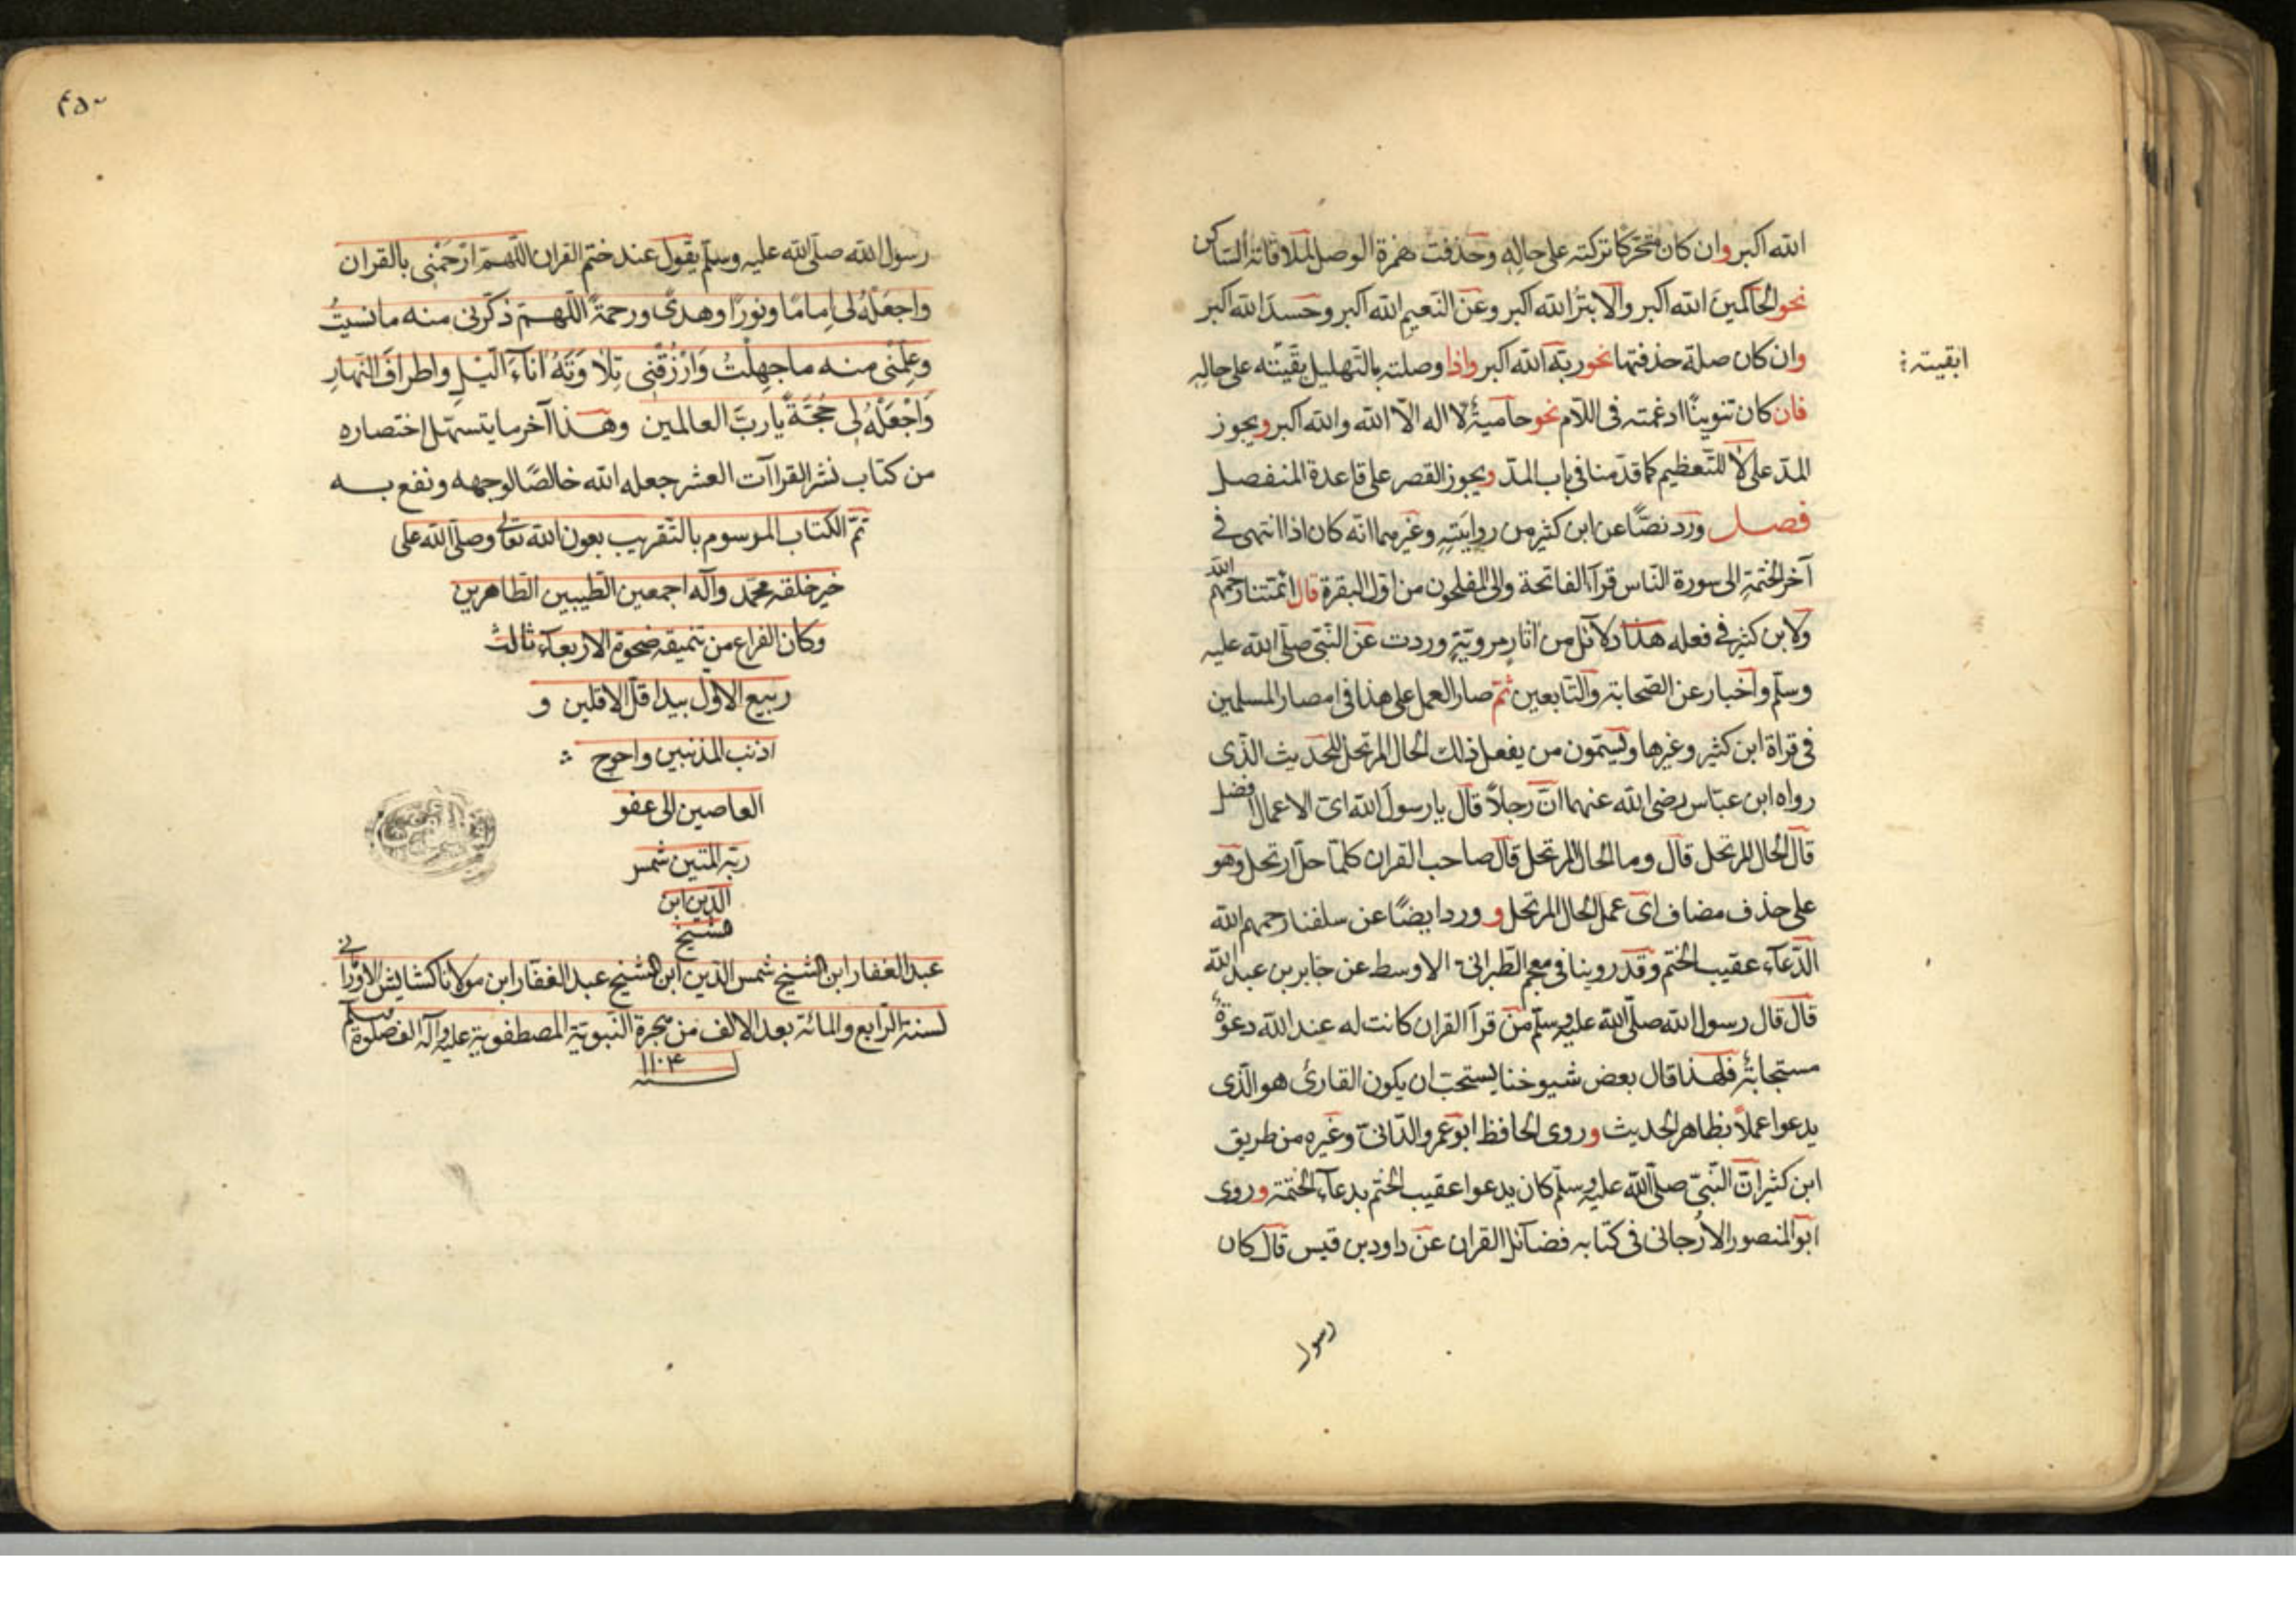 الله اكبر وان كان متحرّكا تركته على حالِهِ وحذفت همزة الوصل لملاقاته الساكن
نحو الحاكمينَ الله اكبر والابترُ الله اكبر وعن النّعيمِ الله اكبر وحسدَ الله اكبر
وان كان صلة حذفتها نحو ربّه الله اكبر واذا وصلته بالتّهليل بقّيته على حاله
ابقيته
فان كان تنوينًا ادغمته فى اللّام نحو حاميةٌ لا اله الّا الله والله اكبر ويجوز
المدّ على لا للتّعظيم كما قدّمنا فى باب المدّ ويجوز القصر على قاعدة المنفصل
فصل ورد نصًّا عن ابن كثير من روايَتَيهِ وغيرهما انّه كان اذا انتهى فى
آخر الختمة الى سورة النّاس قرآ الفاتحة والى المفلحون من اوّل البقرة قال ائمّتنا رحمهم الله
ولابن كثير فى فعله هذا دلآئل من اثارٍ مرويّةٍ وردت عن النّبى صلّى الله عليه
وسلّم واخبار عن الصّحابة والتّابعين ثمّ صار العمل على هذا فى امصار المسلمين
فى قراة ابن كثير وغيرها ويسمّون من يفعل ذلك الحال المرتحل للحديث الّذى
رواه ابن عبّاس رضى الله عنهما انّ رجلاً قال يا رسول الله اىّ الاعمال افضل
قال الحال المرتحل قال وما الحال المرتحل قال صاحب القران كلّما حلّ ارتحل وهو
على حذف مضاف اى عمل الحال المرتحل و ورد ايضًا عن سلفنا رحمهم الله
الدّعآء عقيب الختم وقد روينا فى معجم الطّبرانى الاوسط عن جابر بن عبد الله
قال قال رسول الله صلّى الله عليه وسلّم من قرآ القران كانت له عند الله دعوةٌ
مستجابةٌ فلهذا قال بعض شيوخنا يستحبّ ان يكون القارئ هو الّذى
يدعوا عملاً بظاهر الحديث وروى الحافظ ابو عمرو الدّانىّ وغيره من طريق
ابن كثير انّ النّبىّ صلّى الله عليه وسلّم كان يدعوا عقيب الختم بدعآء الختمة وروى
ابو المنصور الارّجانى فى كتابه فضآئل القران عن داود بن قيس قال كان
رسول
٤٥٠
رسول الله صلّى الله عليه وسلّم يقول عند ختم القران اللّهمّ ارْحَمْنى بالقران
واجعَلْهُ لى اِمامًا ونورًا وهدىً ورحمةً اللّهمّ ذكّرنى منه ما نسيتُ
وعلّمْنى منه ما جهِلْتُ وَارْزُقْنى تِلاوَتَهُ انآءَ الّيْلِ واطرافَ النّهارِ
وَاجْعَلْهُ لى حُجّةً يا ربَّ العالمين وهذا آخر ما يتسهّل اختصاره
من كتاب نشر القراآت العشر جعله الله خالصًا لوجهه ونفع به
تمّ الكتاب الموسوم بالتّقريب بعون الله تعالى وصلّى الله على
خير خلقه محمّد وآله اجمعين الطّيبين الطّاهرين
وكان الفراغ من تنميقه ضحوة الاربعآء ثالث
ربيع الاوّل بيد اقلّ الاقلين و
اذنب المذنبين واحوج
العاصين الى عفو
ربّه المتين شمس
الدّين ابن
شيخ
عبد الغفار ابن الشيخ شمس الدّين ابن الشيخ عبد الغفّار ابن مولانا كشايش
لسنة الرّابع والمائة بعد الالف من هجرة النّبويّة المصطفويّة عليه وآله الف صلوة وسلم
سنه ١١٠۴